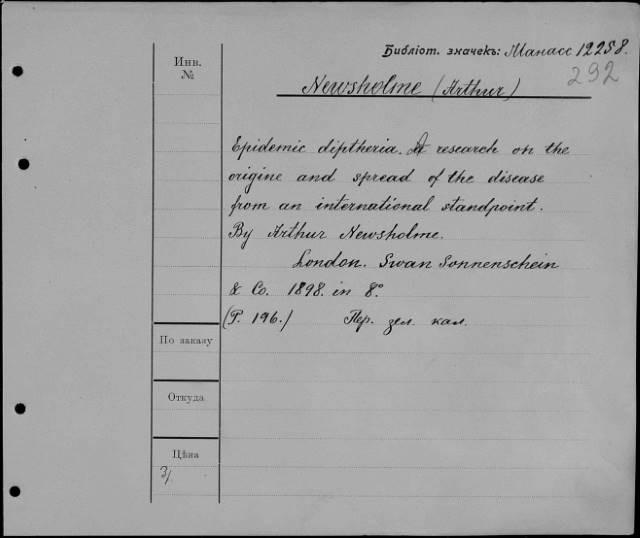 Инв.
№
Библіот. значекъ: Манасс 12258.
292
Newsholme (Arthur)
Epidemic diptheria. A research on the
origine and spread of the disease
from an international standpoint.
By Arthur Newsholme.
London. Swan Sonnenschein
& Co. 1898. in 8°.
(P. 196.) Пер. зел. кал.
По заказу
Откуда
Цѣна
3/